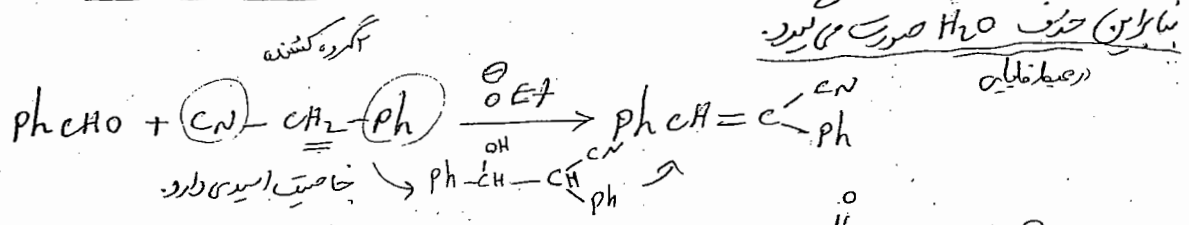 بنابراین حذف H2O صورت می گیرد.
در محیط قلیایی
2 گروه کشنده
PhCHO + CN - CH2 - Ph ⊖OEt → PhCH = C CN Ph
خاصیت اسیدی دارد. Ph - CH OH - CH CN Ph
O